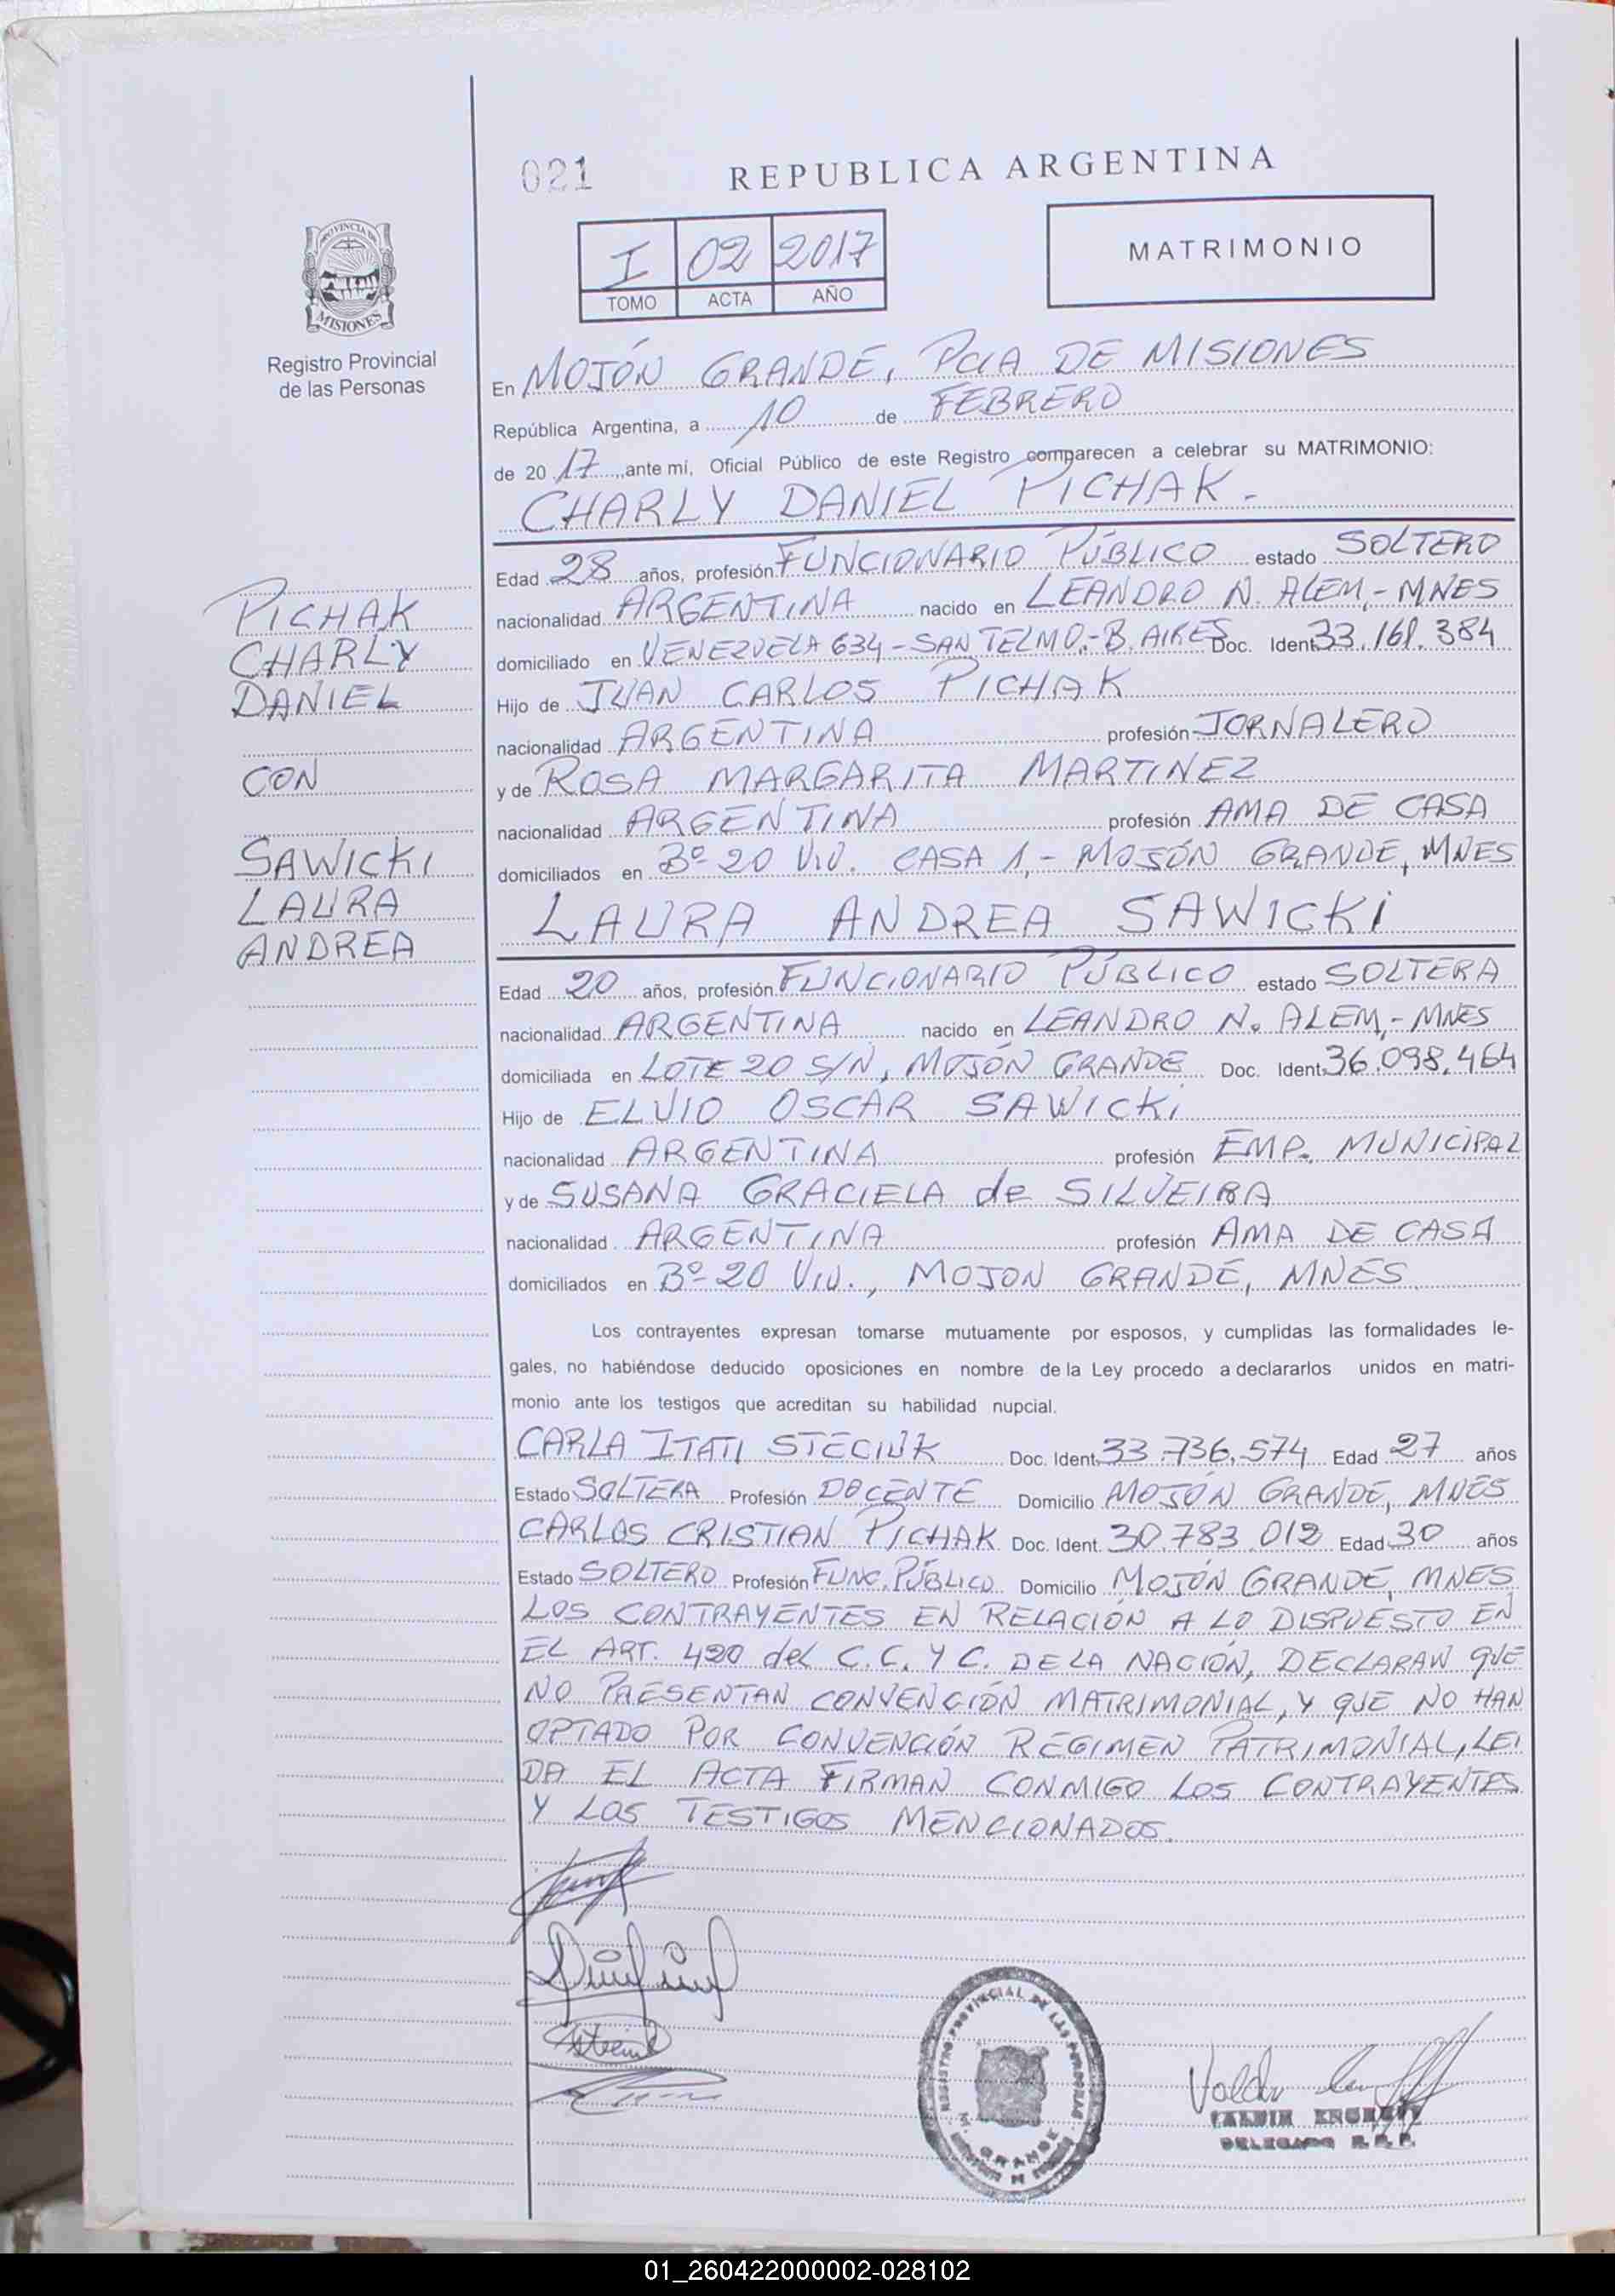 021
REPUBLICA ARGENTINA
I 02 2017
TOMO ACTA AÑO
MATRIMONIO
PROVINCIA DE
MISIONES
Registro Provincial
de las Personas
En MOJÓN GRANDE, PCIA DE MISIONES
República Argentina, a 10 de FEBRERO
de 20 17 ante mí, Oficial Público de este Registro comparecen a celebrar su MATRIMONIO:
CHARLY DANIEL PICHAK.-
Edad 28 años, profesión FUNCIONARIO PÚBLICO estado SOLTERO
nacionalidad ARGENTINA nacido en LEANDRO N. ALEM,- MNES
domiciliado en VENEZUELA 634-SAN TELMO.-B. AIRES Doc. Ident. 33.161.384
Hijo de JUAN CARLOS PICHAK
nacionalidad ARGENTINA profesión JORNALERO
y de ROSA MARGARITA MARTINEZ
nacionalidad ARGENTINA profesión AMA DE CASA
domiciliados en Bº 20 VIV. CASA 1,- MOJÓN GRANDE, MNES
PICHAK
CHARLY
DANIEL
CON
SAWICKI
LAURA
ANDREA
LAURA ANDREA SAWICKI
Edad 20 años, profesión FUNCIONARIO PÚBLICO estado SOLTERA
nacionalidad ARGENTINA nacido en LEANDRO N. ALEM,- MNES
domiciliada en LOTE 20 S/N, MOJÓN GRANDE Doc. Ident. 36.098.464
Hijo de ELVIO OSCAR SAWICKI
nacionalidad ARGENTINA profesión EMP. MUNICIPAL
y de SUSANA GRACIELA de SILVEIRA
nacionalidad ARGENTINA profesión AMA DE CASA
domiciliados en Bº 20 VIV., MOJON GRANDE, MNES
Los contrayentes expresan tomarse mutuamente por esposos, y cumplidas las formalidades le-
gales, no habiéndose deducido oposiciones en nombre de la Ley procedo a declararlos unidos en matri-
monio ante los testigos que acreditan su habilidad nupcial.
CARLA ITATI STECIUK Doc. Ident. 33.736.574 Edad 27 años
Estado SOLTERA Profesión DOCENTE Domicilio MOJÓN GRANDE, MNES
CARLOS CRISTIAN PICHAK Doc. Ident. 30.783.012 Edad 30 años
Estado SOLTERO Profesión FUNC. PÚBLICO Domicilio MOJÓN GRANDE, MNES
LOS CONTRAYENTES EN RELACIÓN A LO DISPUESTO EN
EL ART. 420 del C.C. Y C. DE LA NACIÓN, DECLARAN QUE
NO PRESENTAN CONVENCIÓN MATRIMONIAL, Y QUE NO HAN
OPTADO POR CONVENCIÓN RÉGIMEN PATRIMONIAL, LEI
DA EL ACTA FIRMAN CONMIGO LOS CONTRAYENTES
Y LOS TESTIGOS MENCIONADOS.
REGISTRO PROVINCIAL DE LAS PERSONAS
M. GRANDE
DELEGADO R.P.P.
01_260422000002-028102